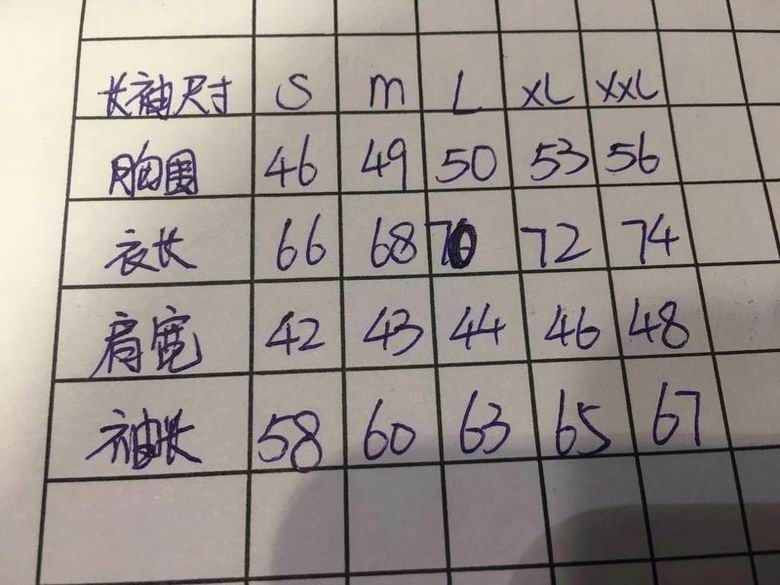 长袖尺寸 S M L XL XXL
胸围 46 49 50 53 56
衣长 66 68 70 72 74
肩宽 42 43 44 46 48
袖长 58 60 63 65 67